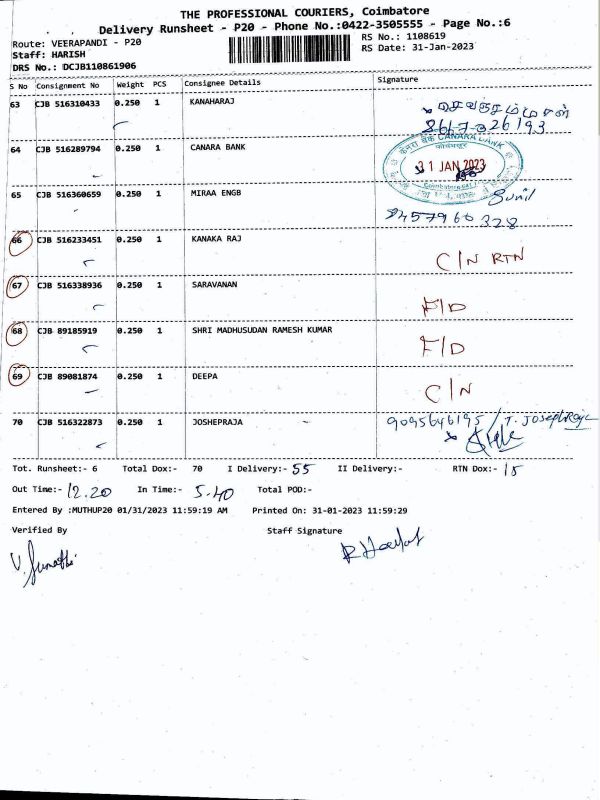 THE PROFESSIONAL COURIERS, Coimbatore
Delivery Runsheet - P20 - Phone No.:0422-3505555 - Page No.:6
Route: VEERAPANDI - P20
RS No.: 1108619
Staff: HARISH
RS Date: 31-Jan-2023
DRS No.: DCJB110861906
S No Consignment No Weight PCS Consignee Details Signature
63 CJB 516310433 0.250 1 KANAHARAJ
8667026193
64 CJB 516289794 0.250 1 CANARA BANK
CANARA BANK
31 JAN 2023
65 CJB 516360659 0.250 1 MIRAA ENGB Sunil
9457960328
66 CJB 516233451 0.250 1 KANAKA RAJ
C/N RTN
67 CJB 516338936 0.250 1 SARAVANAN
F/D
68 CJB 89185919 0.250 1 SHRI MADHUSUDAN RAMESH KUMAR
F/D
69 CJB 89081874 0.250 1 DEEPA
C/N
70 CJB 516322873 0.250 1 JOSHEPRAJA 9095646195 /
Tot. Runsheet:- 6 Total Dox:- 70 I Delivery:- 55 II Delivery:- RTN Dox:- 15
Out Time:- 12.20 In Time:- 5.40 Total POD:-
Entered By :MUTHUP20 01/31/2023 11:59:19 AM Printed On: 31-01-2023 11:59:29
Verified By Staff Signature